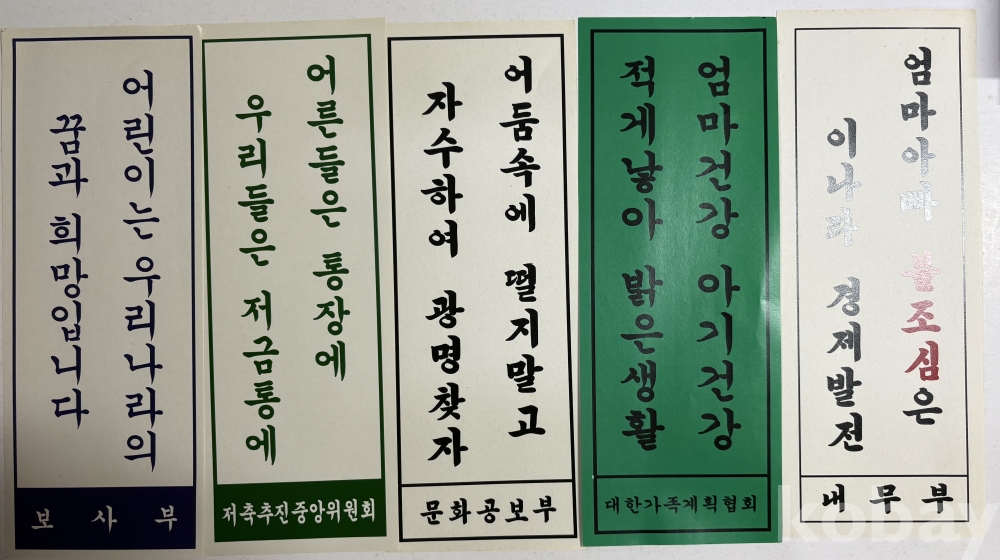 어린이는 우리나라의
꿈과 희망입니다
보사부
어른들은 통장에
우리들은 저금통에
저축추진중앙위원회
어둠속에 떨지말고
자수하여 광명찾자
문화공보부
엄마건강 아기건강
적게낳아 밝은생활
대한가족계획협회
엄마아빠 불조심은
이나라 경제발전
내무부
kobay